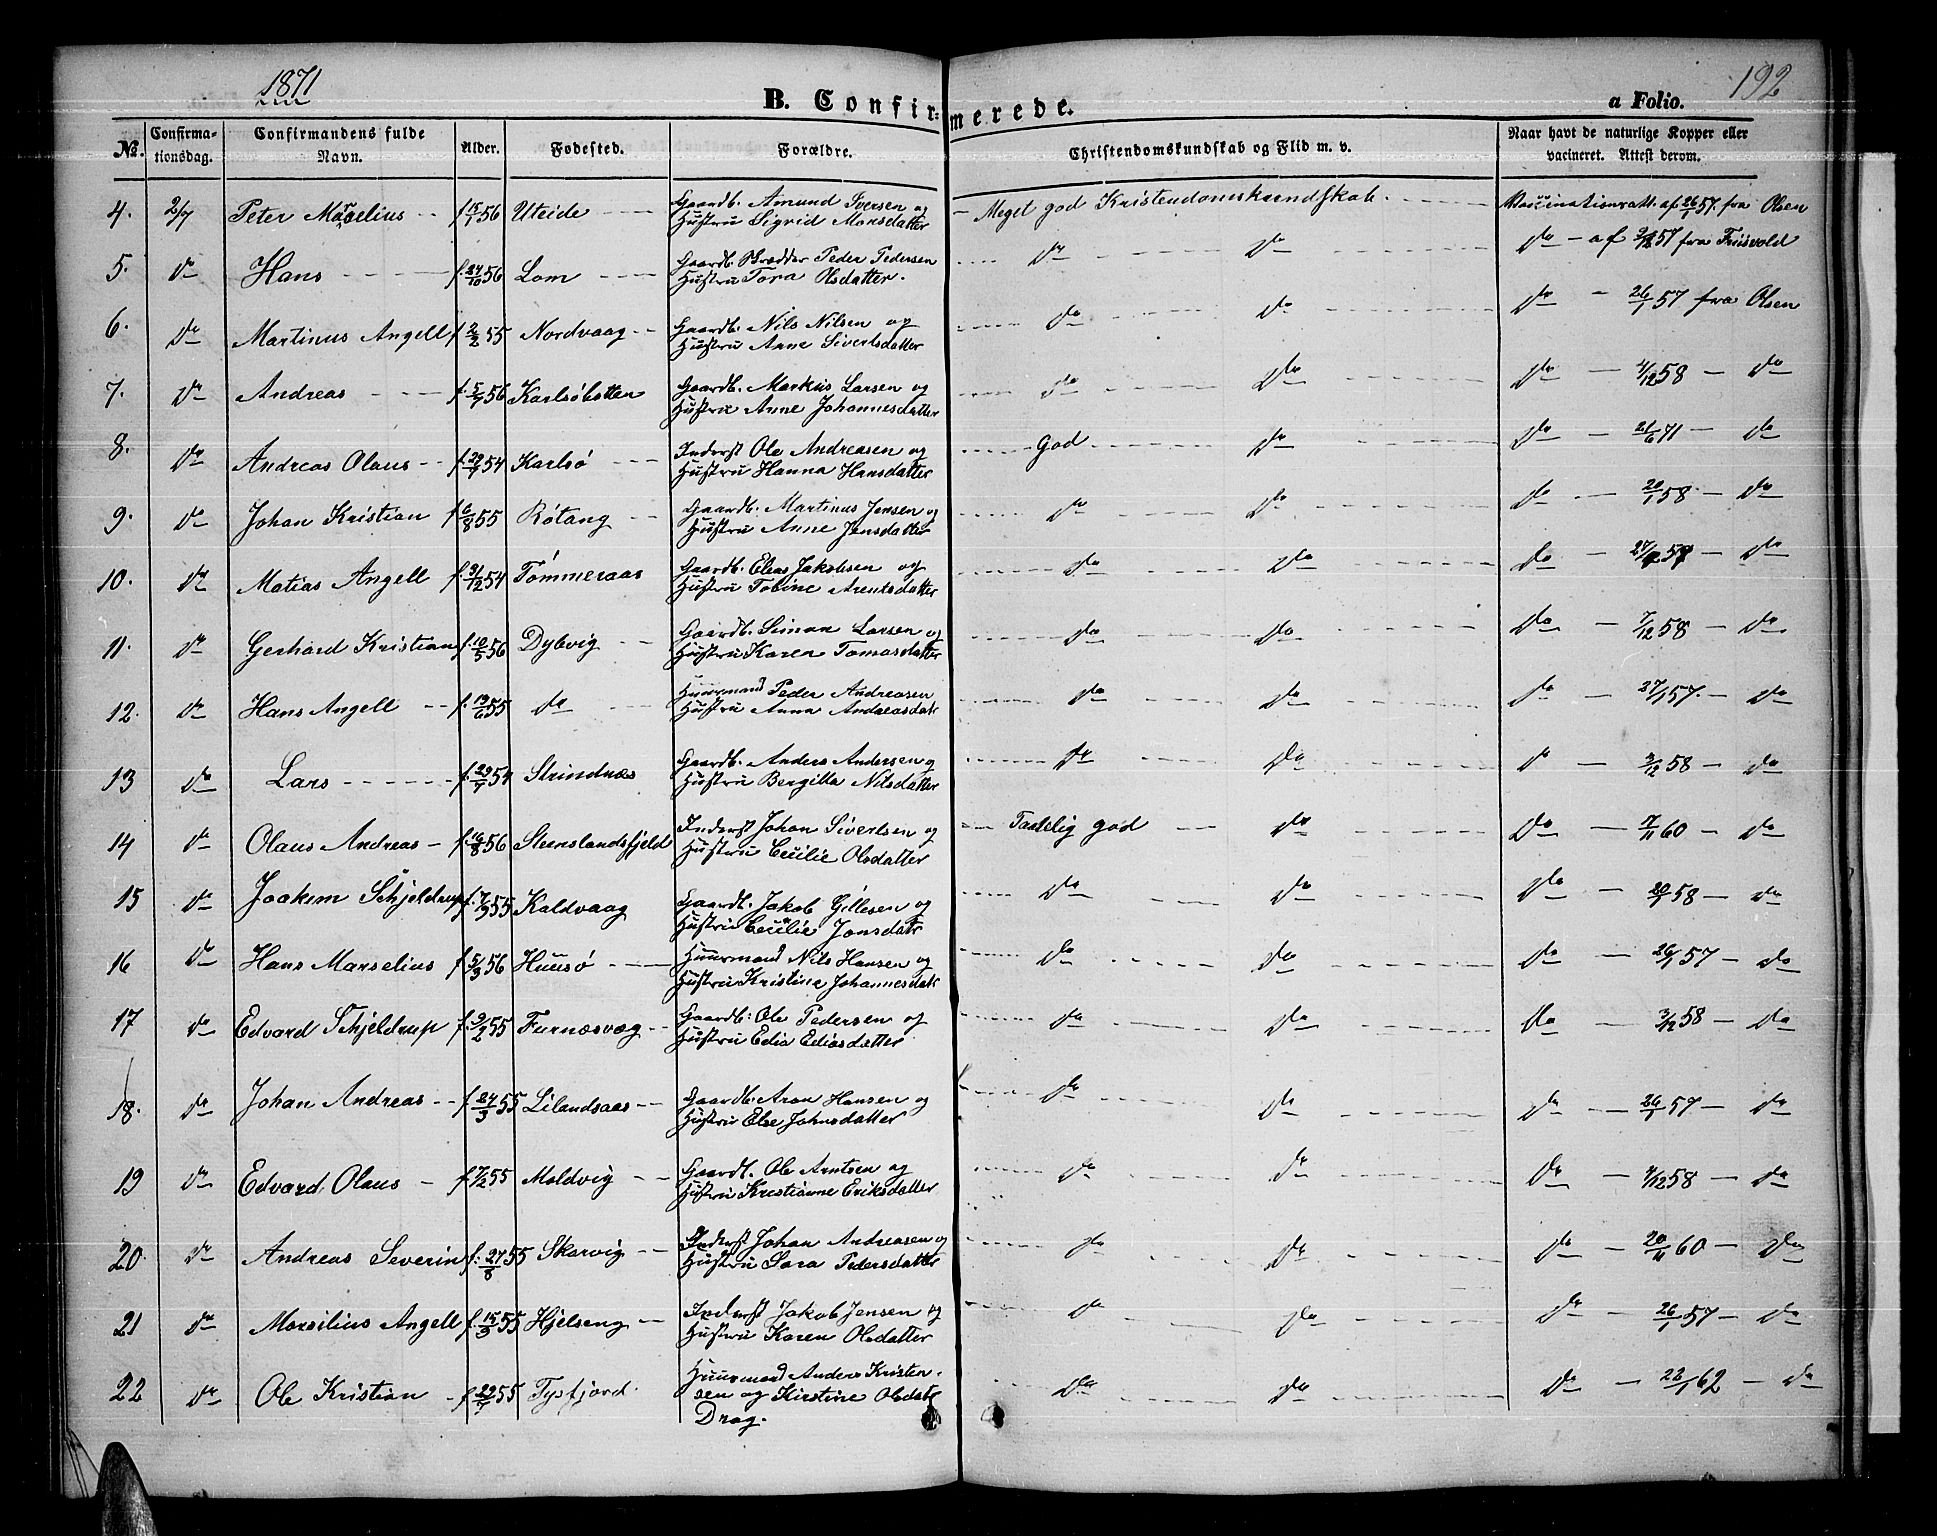 1871
192
B. Confirmerede.
a Folio.
No.
Confirmationsdag.
Confirmandens fulde Navn.
Alder.
Fødested.
Forældre.
Christendomskundskab og Flid m. v.
Naar havt de naturlige Kopper eller vacineret. Attest derom.
4. 2/7 Peter Marselius f. 15/1 56 Uteide Gaardb. Amund Iversen og Hustru Sigrid Monsdatter Meget god Kristendomskundskab. Vaccinationsatt. af 26/1 57. fra Olsen
5. do Hans f. 27/10 56 Lom Gaardb. Brædder Peder Pedersen Hustru Tora Olsdatter. do do do af 57 fra Friisvold
6. do Martinus Angell f. 2/2 55 Nordvaag Gaardb. Nils Nilsen og Hustru Anne Sivertsdatter do do do 26/1 57 fra Olsen
7. do Andreas f. 5/7 56 Karlsøbotten Gaardb. Markus Larsen og Hustru Anne Johannesdatter do do do 4/12 58 do
8. do Andreas Olaus f. 29/7 54 Karlsø Inderst Ole Andreasen og Hustru Hanna Hansdatter God do do 21/6 71 do
9. do Johan Kristian f. 6/8 55 Røtang Gaardb. Martinus Jensen og Hustru Anne Jensdatter do do do 20/1 58 do
10. do Matias Angell f. 31/12 54 Tømmeraas Gaardb. Elias Jakobsen og Hustru Tobine Arentsdatter do do do 57 do
11. do Gerhard Kristian f. 10/5 56 Dybvig Gaardb. Simon Larsen og Hustru Karen Tomasdatter do do do 7/12 58 do
12. do Hans Angell f. 19/6 55 do Huusmand Peder Andreasen Hustru Anna Andreasdatr do do do 27/1 57 do
13 do Lars f. 29/7 54 Strindnæs Gaardb. Anders Andersen og Hustru Bergitta Nilsdatter do do do 3/12 58 do
14 do Olaus Andreas f. 16/8 56 Steenslandsfjeld Inderst Johan Sivertsen og Hustru Cecilie Olsdatter Taalelig god do do 7/11 60 do
15 do Joakim Schjeldrup f. 7/9 55 Kaldvaag Gaardb. Jakob Gillesen og Hustru Cecilie Jonsdatr do do do 20/1 58 do
16 do Hans Marselius f. 5/3 56 Huusø Huusmand Nils Hansen og Hustru Kristine Johannesdatr do do do 26/1 57 do
17 do Edvard Schjeldrup f. 9/2 55 Furnæsvæg Gaardb: Ole Pedersen og Hustru Edia Ediasdatter do do do 3/12 58 do
18. do Johan Andreas f. 24/3 55 Lilandsaas Gaardb. Aron Hansen og Hustru Else Johnsdatter do do do 26/1 57 do
19 do Edvard Olaus f. 7/2 55 Moldvig Gaardb. Ole Arntsen og Hustru Kristianne Eriksdatter do do do 4/12 58 do
20. do Andreas Severin f: 27/8 55 Skarvig Inderst Johan Andreasen og Hustru Sara Pedersdatter do do do 20/11 60 do
21 do Marsilius Angell f. 15/3 55 Hjelseng Inderst Jakob Jensen og Hustru Karen Olsdatter do do do 26/1 57 do
22 do Ole Kristian f. 29/7 55 Tysfjord. Huusmand Anders Kristensen og Kirstine Olsdatr Drag. do do do 22/1 62 do